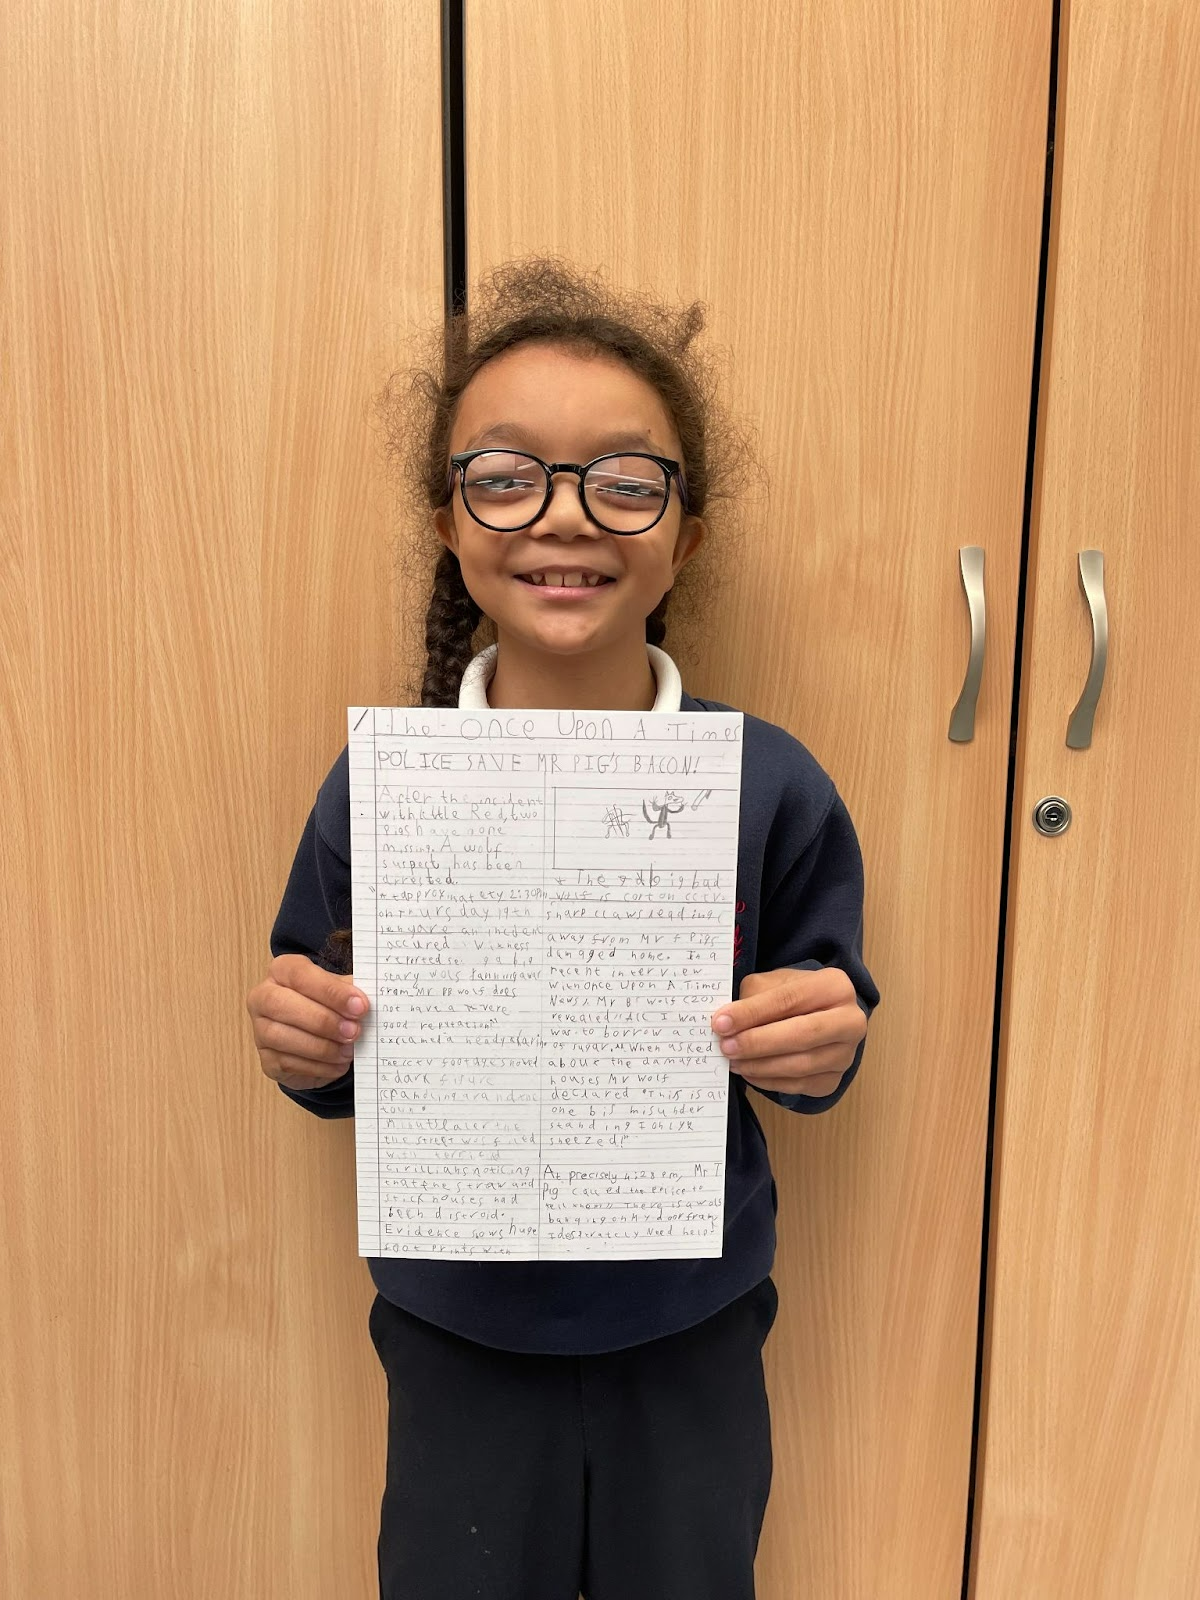 The Once Upon A Times
POLICE SAVE MR PIG'S BACON!
After the incident
with little Red, two
Pigs have gone
missing. A wolf
suspect has been
arrested.
2:30Pm
on Thursday 19th
an incident
accured. Witness
reported
scary wolf
from Mr pig wolf does
not have a very
good reputation"
explamed a
The CCTV footage showed
a dark figure
town.
later the
the street was filled
with
civillians noticing
that the straw and
stick houses had
been distroid.
Evidence sows huge
foot prints with
The big bad
wolf is cort on CCTV.
sharp claws leading
away from Mr Pigs
damaged home. In a
recent interview
with Once Upon A Times
News, Mr B Wolf (20)
revealed "All I want
was to borrow a cup
of sugar." When asked
about the damaged
houses Mr Wolf
declared "This is all
one big misunder
standing I only
sneezed!"
At precisely 4:28 pm, Mr T
Pig called the police to
There is a wolf
banging on my door fram,
I desperately need help!